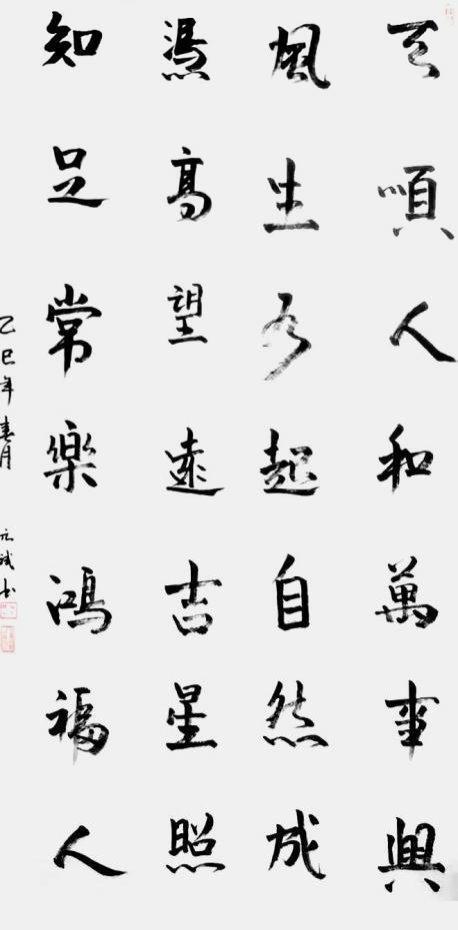 天順人和萬事興
風生水起自然成
憑高望遠吉星照
知足常樂鴻福人
乙巳年春月 元 书